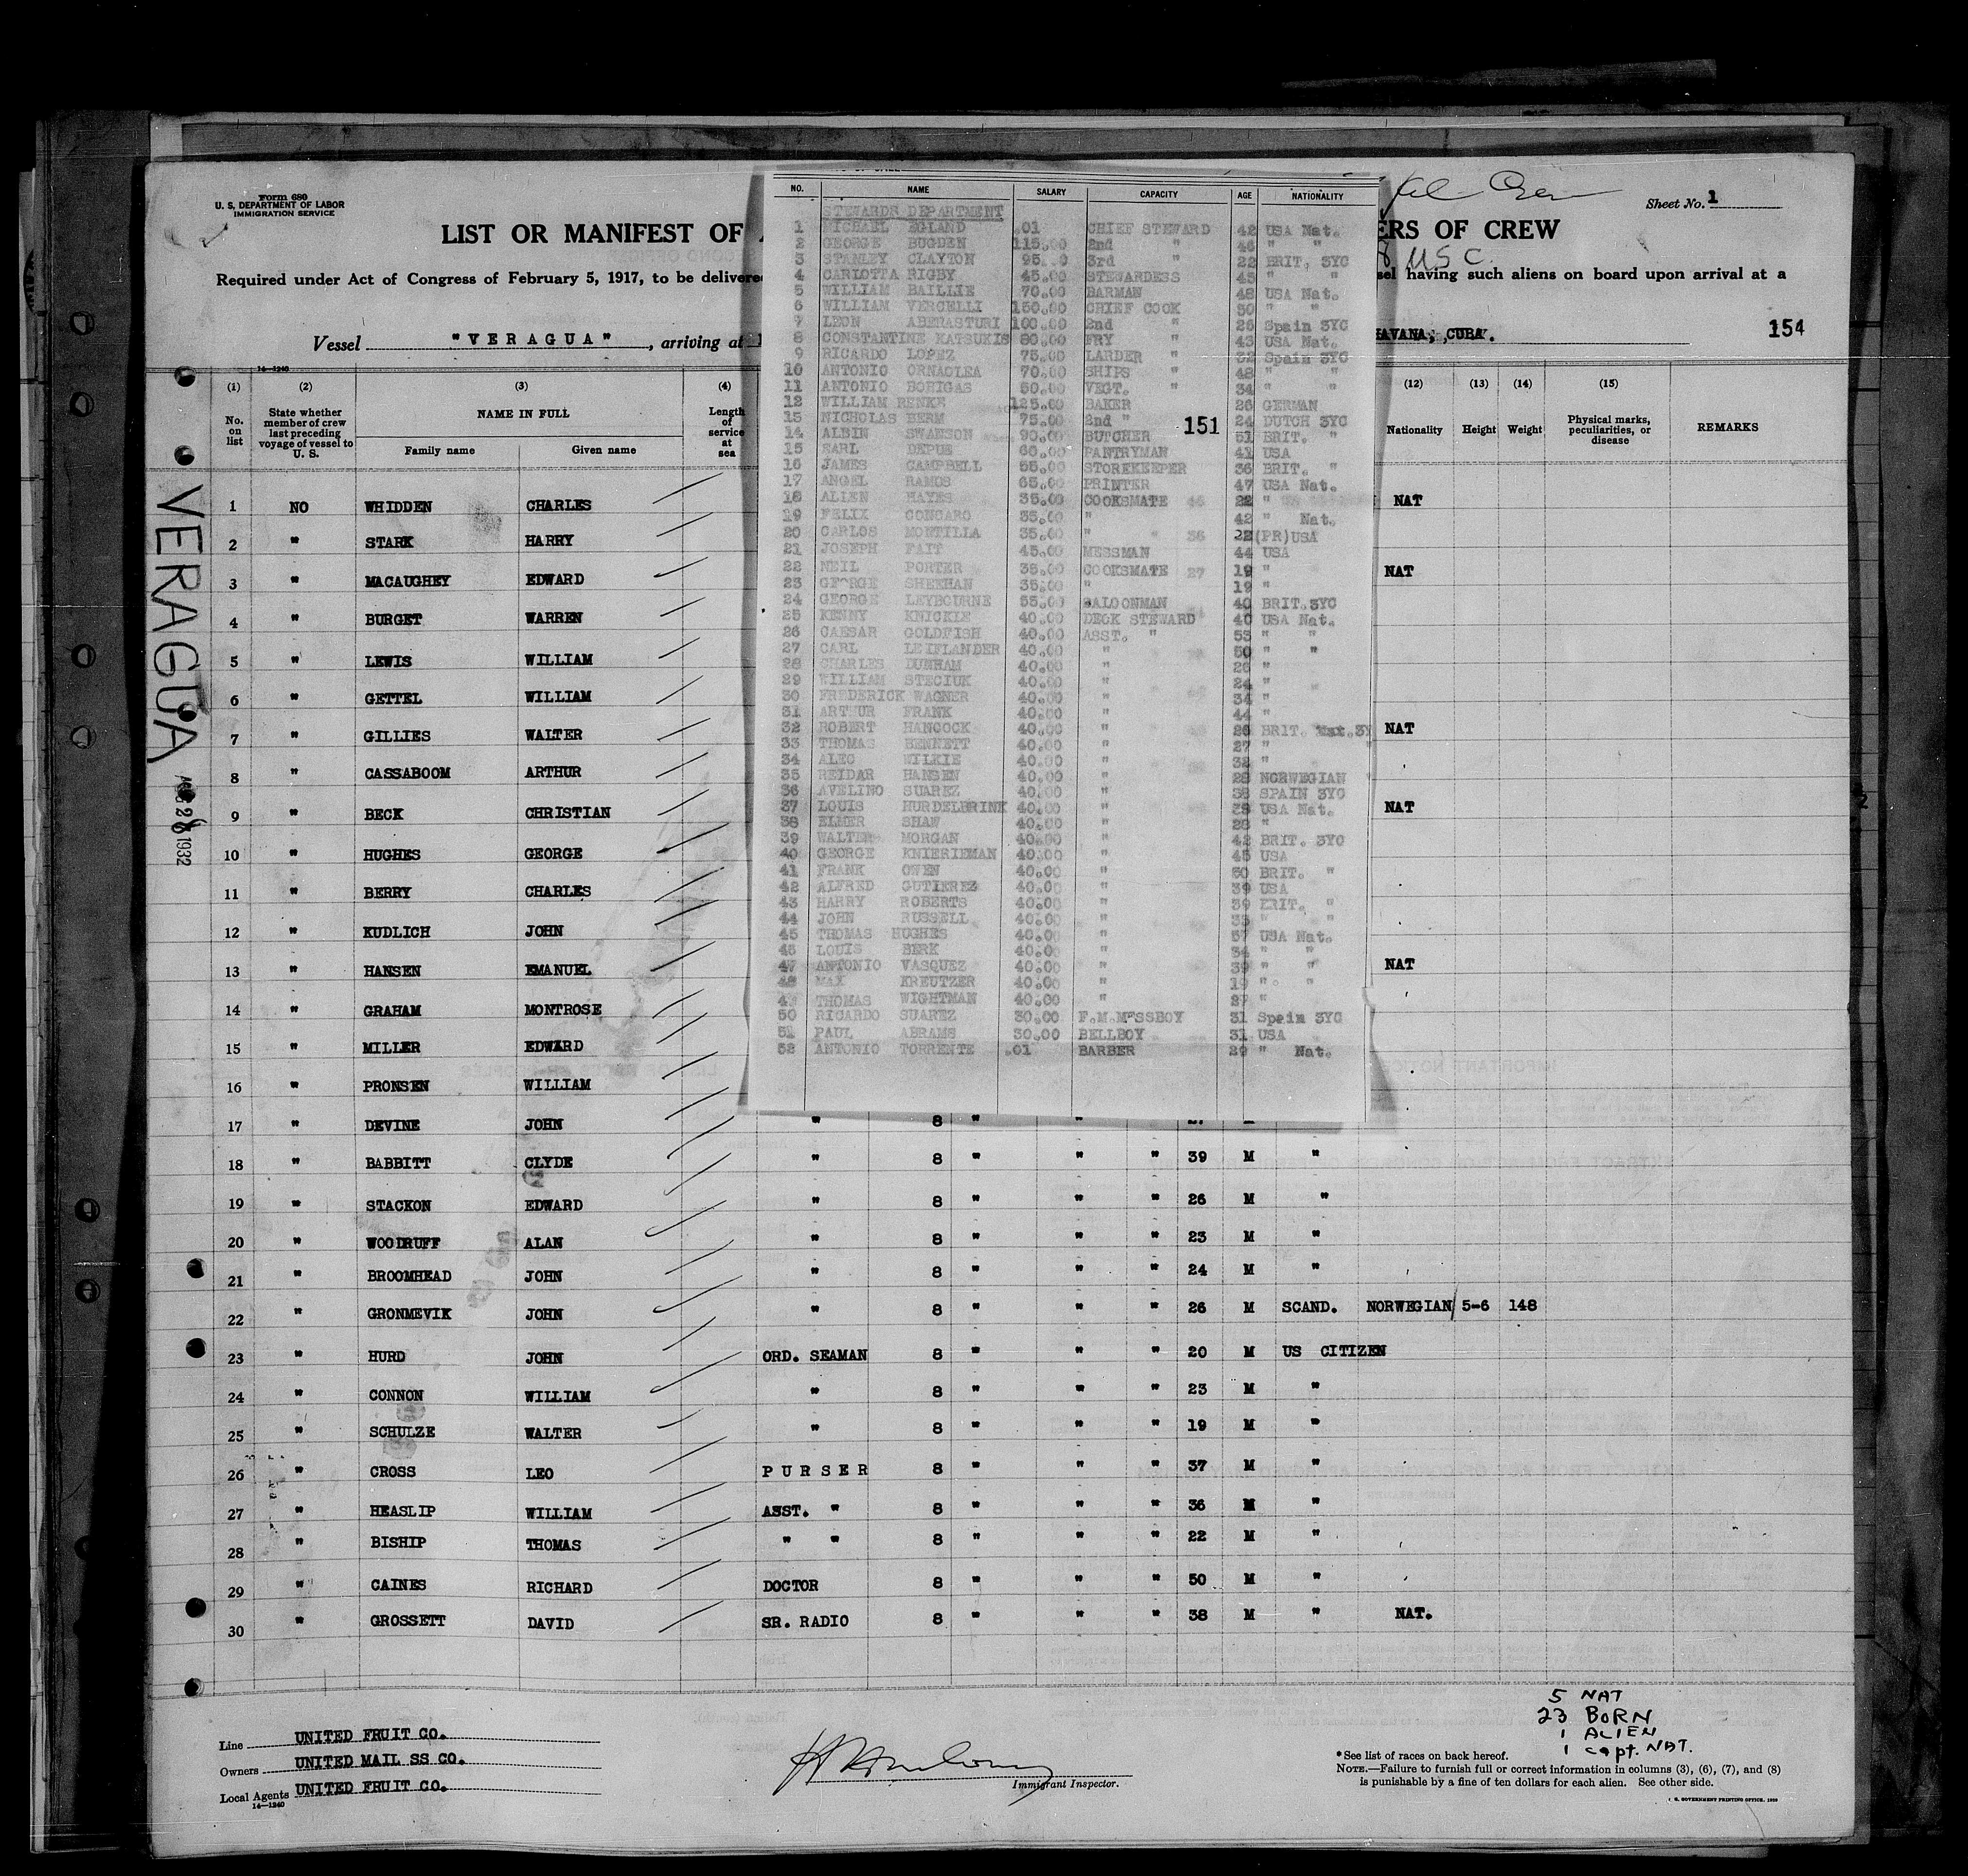 Form 680
U. S. DEPARTMENT OF LABOR
IMMIGRATION SERVICE
Sheet No. 1
LIST OR MANIFEST OF
ERS OF CREW
U S C.
Required under Act of Congress of February 5, 1917, to be delivere
sel having such aliens on board upon arrival at a
Vessel "VERAGUA", arriving at
HAVANA, CUBA.
154
VERAGUA
1932
14-1240
(1) (2) (3) (4)
No. on list
State whether member of crew last preceding voyage of vessel to U. S.
NAME IN FULL
Family name Given name
Length of service at sea
(12) (13) (14) (15)
Nationality Height Weight Physical marks, peculiarities, or disease REMARKS
NO. NAME SALARY CAPACITY AGE NATIONALITY
STEWARDS DEPARTMENT
1 MICHAEL EGLAND .01 CHIEF STEWARD 42 USA Nat.
2 GEORGE BUGDEN 115.00 2nd " 46 " "
3 STANLEY CLAYTON 95. 0 3rd " 22 BRIT. 3YC
4 CARLOTTA RIGBY 45.00 STEWARDESS 45 " "
5 WILLIAM BAILLIE 70.00 BARMAN 48 USA Nat.
6 WILLIAM VERCELLI 150.00 CHIEF COOK 50 " "
7 LEON ABERASTURI 100.00 2nd " 26 Spain 3YC
8 CONSTANTINE KATSUKIS 80.00 FRY " 43 USA Nat.
9 RICARDO LOPEZ 75.00 LARDER " 32 Spain 3YC
10 ANTONIO ORNAOLEA 70.00 SHIPS " 48 " "
11 ANTONIO BORIGAS 50.00 VEGT. " 34 " "
12 WILLIAM RENKE 125.00 BAKER 26 GERMAN
13 NICHOLAS HERM 75.00 2nd " 24 DUTCH 3YC
151
14 ALBIN SWANSON 90.00 BUTCHER 51 BRIT. "
15 EARL DEPUE 60.00 PANTRYMAN 41 USA
16 JAMES CAMPBELL 55.00 STOREKEEPER 36 BRIT. "
17 ANGEL RAMOS 65.00 PRINTER 47 USA Nat.
18 ALLEN HAYES 35.00 COOKSMATE 22 "
19 FELIX GONGARO 35.00 " 42 " Nat.
20 CARLOS MONTILLA 35.00 " 22 (PR)USA
21 JOSEPH FAIT 45.00 MESSMAN 44 USA
22 NEIL PORTER 35.00 COOKSMATE 19 "
23 GEORGE SHEEHAN 35.00 " 19 "
24 GEORGE LEYBOURNE 55.00 SALOONMAN 40 BRIT.3YC
25 KENNY KNICKLE 40.00 DECK STEWARD 40 USA Nat.
26 CAESAR GOLDFISH 40.00 ASST. " 53 " "
27 CARL LEIFLANDER 40.00 " 50 " "
28 CHARLES DUNHAM 40.00 " 26 "
29 WILLIAM STECIUK 40.00 " 24 "
30 FREDERICK WAGNER 40.00 " 34 "
31 ARTHUR FRANK 40.00 " 44 "
32 ROBERT HANCOCK 40.00 " 26 BRIT.
33 THOMAS BENNETT 40.00 " 27 "
34 ALEC WILKIE 40.00 " 32 "
35 REIDAR HANSEN 40.00 " 28 NORWEGIAN
36 AVELINO SUAREZ 40.00 " 38 SPAIN 3YC
37 LOUIS HURDELBRINK 40.00 " 39 USA Nat.
38 ELMER SHAW 40.00 " 28 "
39 WALTER MORGAN 40.00 " 42 BRIT. 3YC
40 GEORGE KNIERIEMAN 40.00 " 45 USA
41 FRANK OWEN 40.00 " 50 BRIT. "
42 ALFRED GUTIEREZ 40.00 " 39 USA
43 HARRY ROBERTS 40.00 " 39 BRIT. "
44 JOHN RUSSELL 40.00 " 33 " "
45 THOMAS HUGHES 40.00 " 37 USA Nat.
45 LOUIS BERK 40.00 " 34 " "
47 ANTONIO VASQUEZ 40.00 " 39 " "
48 MAX KREUTZER 40.00 " 19 " "
49 THOMAS WIGHTMAN 40.00 " 27 "
50 RICARDO SUAREZ 30.00 F.M.MESSBOY 31 Spain 3YC
51 PAUL ABRAMS 30.00 BELLBOY 31 USA
52 ANTONIO TORRENTE .01 BARBER 29 " Nat.
1 NO WHIDDEN CHARLES NAT
2 " STARK HARRY
3 " MACAUGHEY EDWARD NAT
4 " BURGET WARREN
5 " LEWIS WILLIAM
6 " GETTEL WILLIAM
7 " GILLIES WALTER NAT
8 " CASSABOOM ARTHUR
9 " BECK CHRISTIAN NAT
10 " HUGHES GEORGE
11 " BERRY CHARLES
12 " KUDLICH JOHN
13 " HANSEN EMANUEL NAT
14 " GRAHAM MONTROSE
15 " MILLER EDWARD
16 " PRONSEN WILLIAM
17 " DEVINE JOHN " 8 " " "
18 " BABBITT CLYDE " 8 " " " 39 M "
19 " STACKON EDWARD " 8 " " " 26 M "
20 " WOODRUFF ALAN " 8 " " " 23 M "
21 " BROOMHEAD JOHN " 8 " " " 24 M "
22 " GRONMEVIK JOHN " 8 " " " 26 M SCAND. NORWEGIAN 5-6 148
23 " HURD JOHN ORD. SEAMAN 8 " " " 20 M US CITIZEN
24 " CONNON WILLIAM " 8 " " " 23 M "
25 " SCHULZE WALTER " 8 " " " 19 M "
26 " CROSS LEO PURSER 8 " " " 37 M "
27 " HEASLIP WILLIAM ASST. " 8 " " " 36 M "
28 " BISHIP THOMAS " " 8 " " " 22 M "
29 " CAINES RICHARD DOCTOR 8 " " " 50 M "
30 " GROSSETT DAVID SR. RADIO 8 " " " 38 M " NAT.
5 NAT
23 BORN
1 ALIEN
1 Capt. NAT.
Line UNITED FRUIT CO.
Owners UNITED MAIL SS CO.
Local Agents UNITED FRUIT CO.
14-1240
Immigrant Inspector.
*See list of races on back hereof.
NOTE.—Failure to furnish full or correct information in columns (3), (6), (7), and (8)
is punishable by a fine of ten dollars for each alien. See other side.
U. S. GOVERNMENT PRINTING OFFICE. 1929